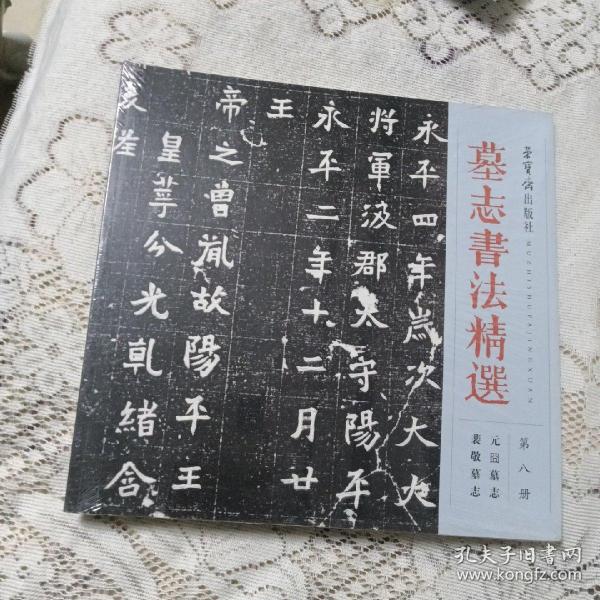 榮寶齋出版社
MUZHISHUFAJINGXUAN
墓志書法精選
第八册
元囧墓志
裴敬墓志
永平四年歲次大
将軍汲郡太守陽平
永平二年十二月廿
王
帝之曾胤故陽平王
皇萼分光乹緒含
孔夫子旧書网
www.kongfz.com